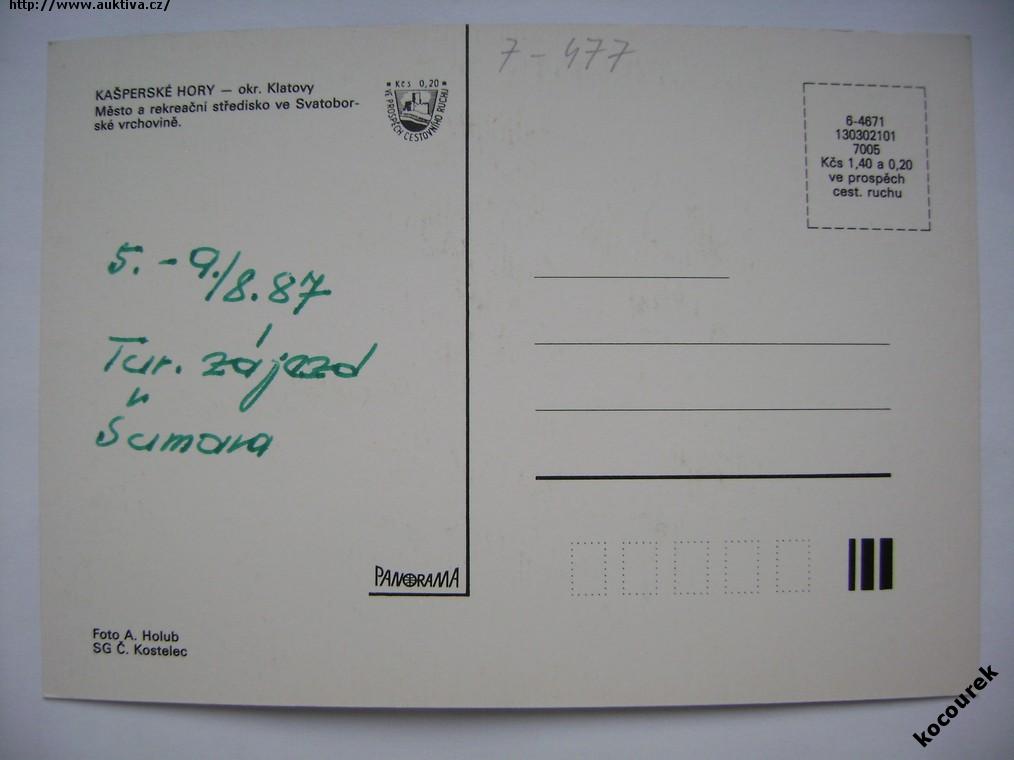 http://www.auktiva.cz/
7-477
KAŠPERSKÉ HORY — okr. Klatovy
Město a rekreační středisko ve Svatobor-
ské vrchovině.
* Kčs 0,20 *
VE PROSPĚCH CESTOVNÍHO RUCHU
6-4671
130302101
7005
Kčs 1,40 a 0,20
ve prospěch
cest. ruchu
5. - 9./8.87
Tur. zájezd
Šumava
PANORAMA
Foto A. Holub
SG Č. Kostelec
kocourek